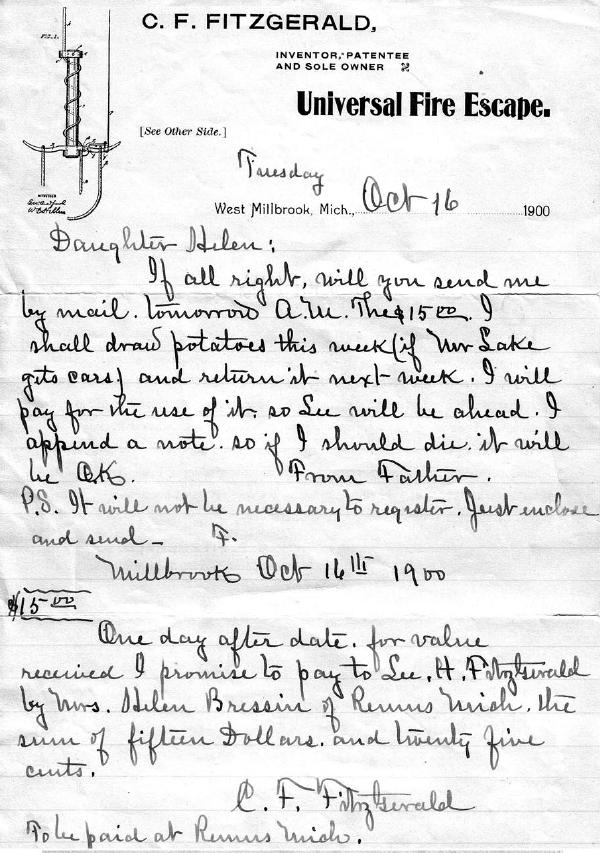 C. F. FITZGERALD,
INVENTOR, PATENTEE
AND SOLE OWNER
Universal Fire Escape.
FIG. 1.
[See Other Side.]
WITNESSES
Tuesday
West Millbrook, Mich., Oct 16 1900
Daughter Helen:
If all right, will you send me
by mail. tomorrow A.M. The $15.00. I
shall draw potatoes this week (if Mr Lake
gets cars) and return it next week. I will
pay for the use of it. so Lee will be ahead. I
append a note. so if I should die. it will
be O.K. From Father.
P.S. It will not be necessary to register. Just enclose
and send - F.
Millbrook Oct 16th 1900
$15.00
One day after date. for value
received I promise to pay to Lee. H. Fitzgerald
by Mrs. Helen Bressin of Remus Mich. the
sum of fifteen Dollars. and twenty five
cents.
C. F. Fitzgerald
To be paid at Remus Mich.